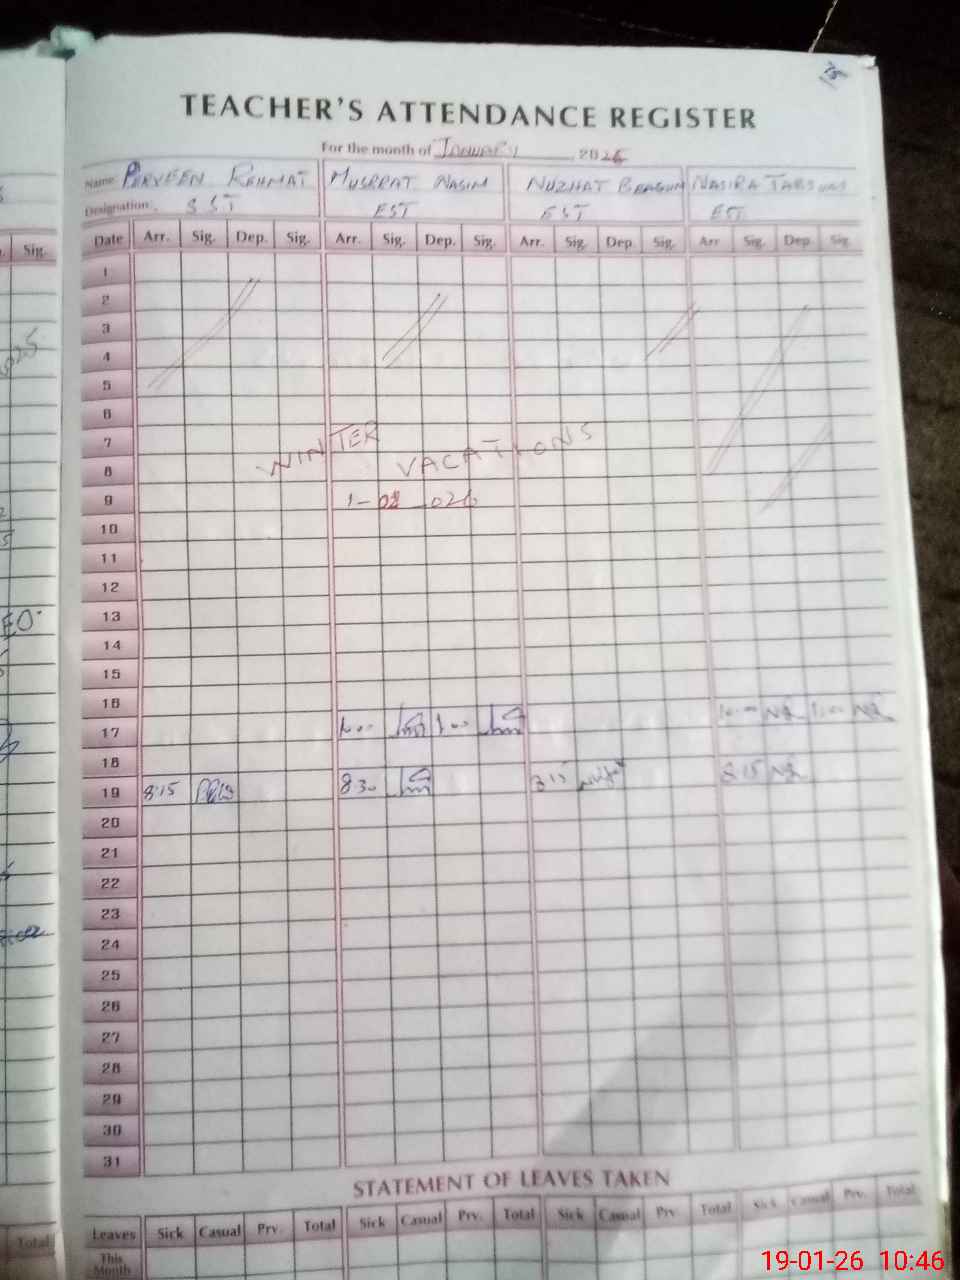 TEACHER'S ATTENDANCE REGISTER
For the month of January 2026
Name: PERVEEN REHMAT MUSRRAT NASIM NUZHAT BEAGUM NASIRA TABSUM
Designation: SST EST EST EST
Sig. Date Arr. Sig. Dep. Sig. Arr. Sig. Dep. Sig. Arr. Sig. Dep. Sig. Arr Sig. Dep. Sig.
1
2
3
4
5
6
7
WINTER VACATIONS
8
9 1-01-026
10
11
12
13
14
15
16
17
18
19 8:15 8:30 8:15 8:15
20
21
22
23
24
25
26
27
28
29
30
31
STATEMENT OF LEAVES TAKEN
Total Leaves Sick Casual Prv. Total Sick Casual Prv. Total Sick Casual Prv. Total Sick Casual Prv. Total
This
Month
19-01-26 10:46